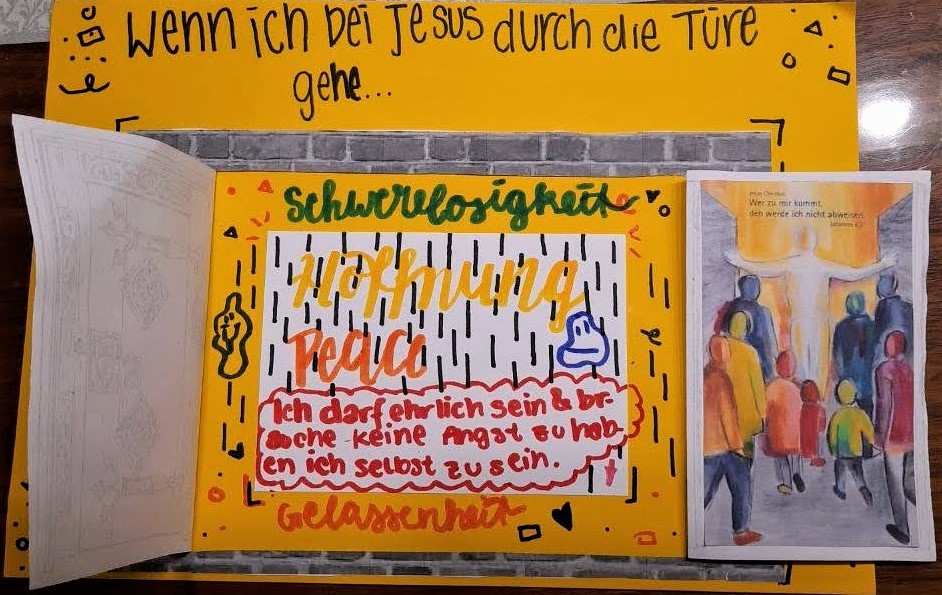 Wenn ich bei Jesus durch die Türe
gehe...
Schwerelosigkeit
Hoffnung
Peace
Ich darf ehrlich sein & br-
auche keine Angst zu hab-
en ich selbst zu sein.
Gelassenheit
Jesus Christus:
Wer zu mir kommt,
den werde ich nicht abweisen.